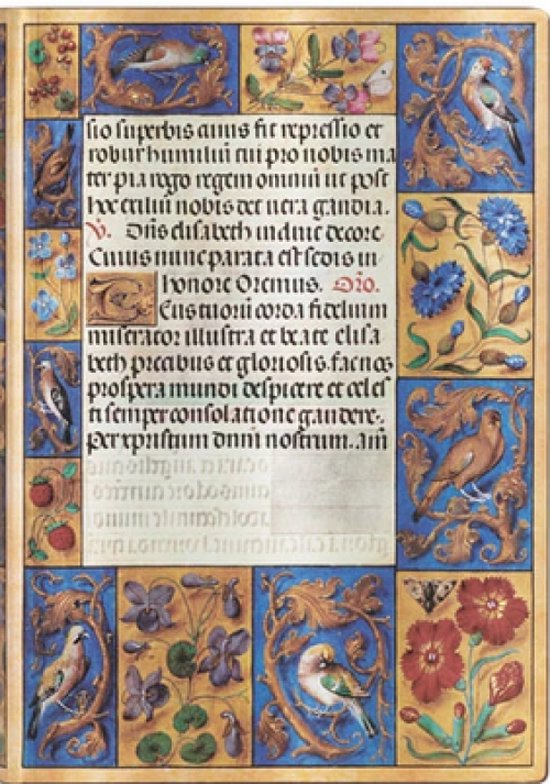 sio superbis cuius fit repressio et
robur humiliū tui pro nobis ma
ter pia rogo regem omniū ut post
hec exiliū nobis det uera gaudia.
V. Dñs elisabeth induit decore.
Cuius nunc parata est sedis in
honore Oremus. Oro.
Eus tuorū corda fidelium
miserator illustra et beate elisa
beth precibus et gloriosis. fac nos
prospera mundi despicere et celes
ti semper consolatione gaudere.
Per xpristum dnm̄ nostrum. am̄